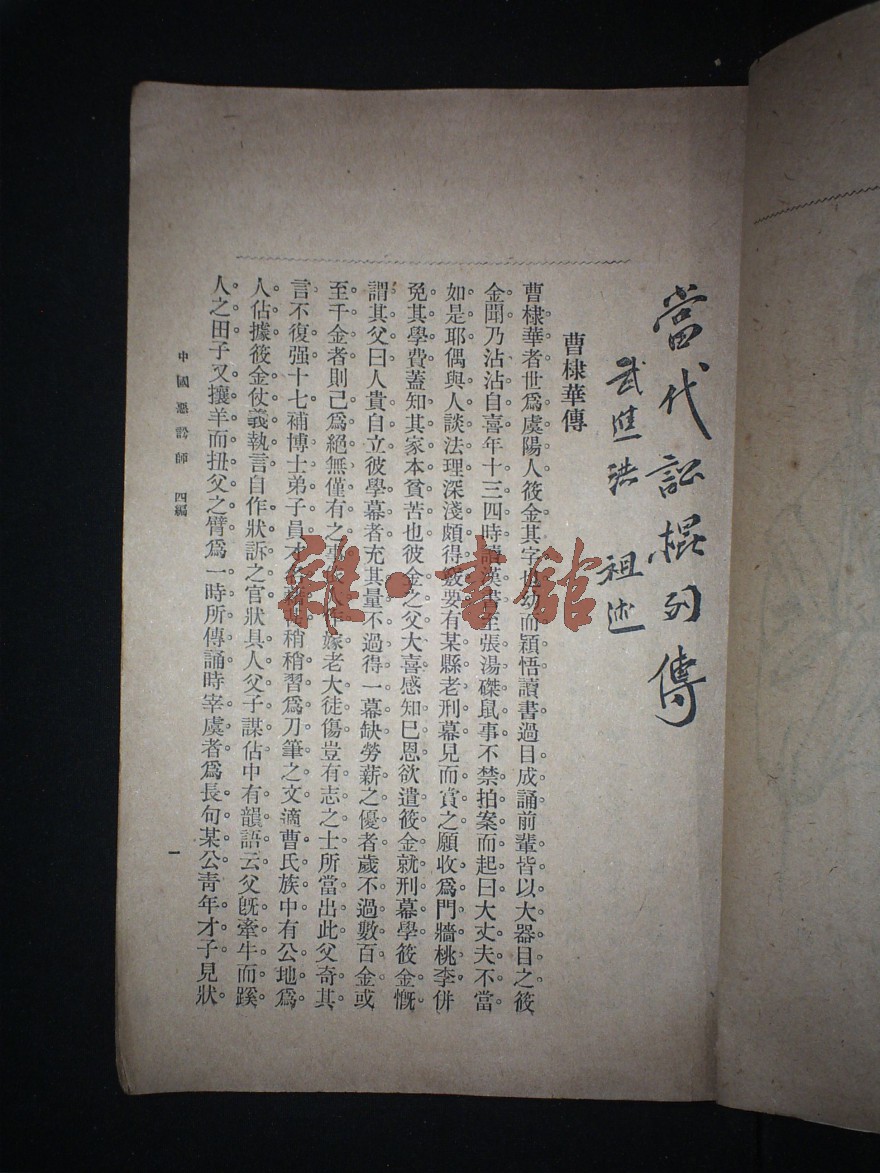 當代訟棍列傳
武進洪 祖述
曹棣華傳
曹棣華者世爲虞陽人筱金其字也幼而穎悟讀書過目成誦前輩皆以大器目之筱
金聞乃沾沾自喜年十三四時讀漢書至張湯磔鼠事不禁拍案而起曰大丈夫不當
如是耶偶與人談法理深淺頗得竅要有某縣老刑幕見而賞之願收爲門牆桃李併
免其學費蓋知其家本貧苦也彼金之父大喜感知巳恩欲遣筱金就刑幕學筱金慨
謂其父曰人貴自立彼學幕者充其量不過得一幕缺勞薪之優者歲不過數百金或
至千金者則已爲絕無僅有之事 嫁老大徒傷豈有志之士所當出此父奇其
言不復强十七補博士弟子員才 稍稍習爲刀筆之文適曹氏族中有公地爲
人佔據筱金仗義執言自作狀訴之官狀具人父子謀佔中有韻語云父旣牽牛而蹊
人之田子又攘羊而扭父之臂爲一時所傳誦時宰虞者爲長句某公靑年才子見狀
中國惡訟師 四編
一
雜·書館